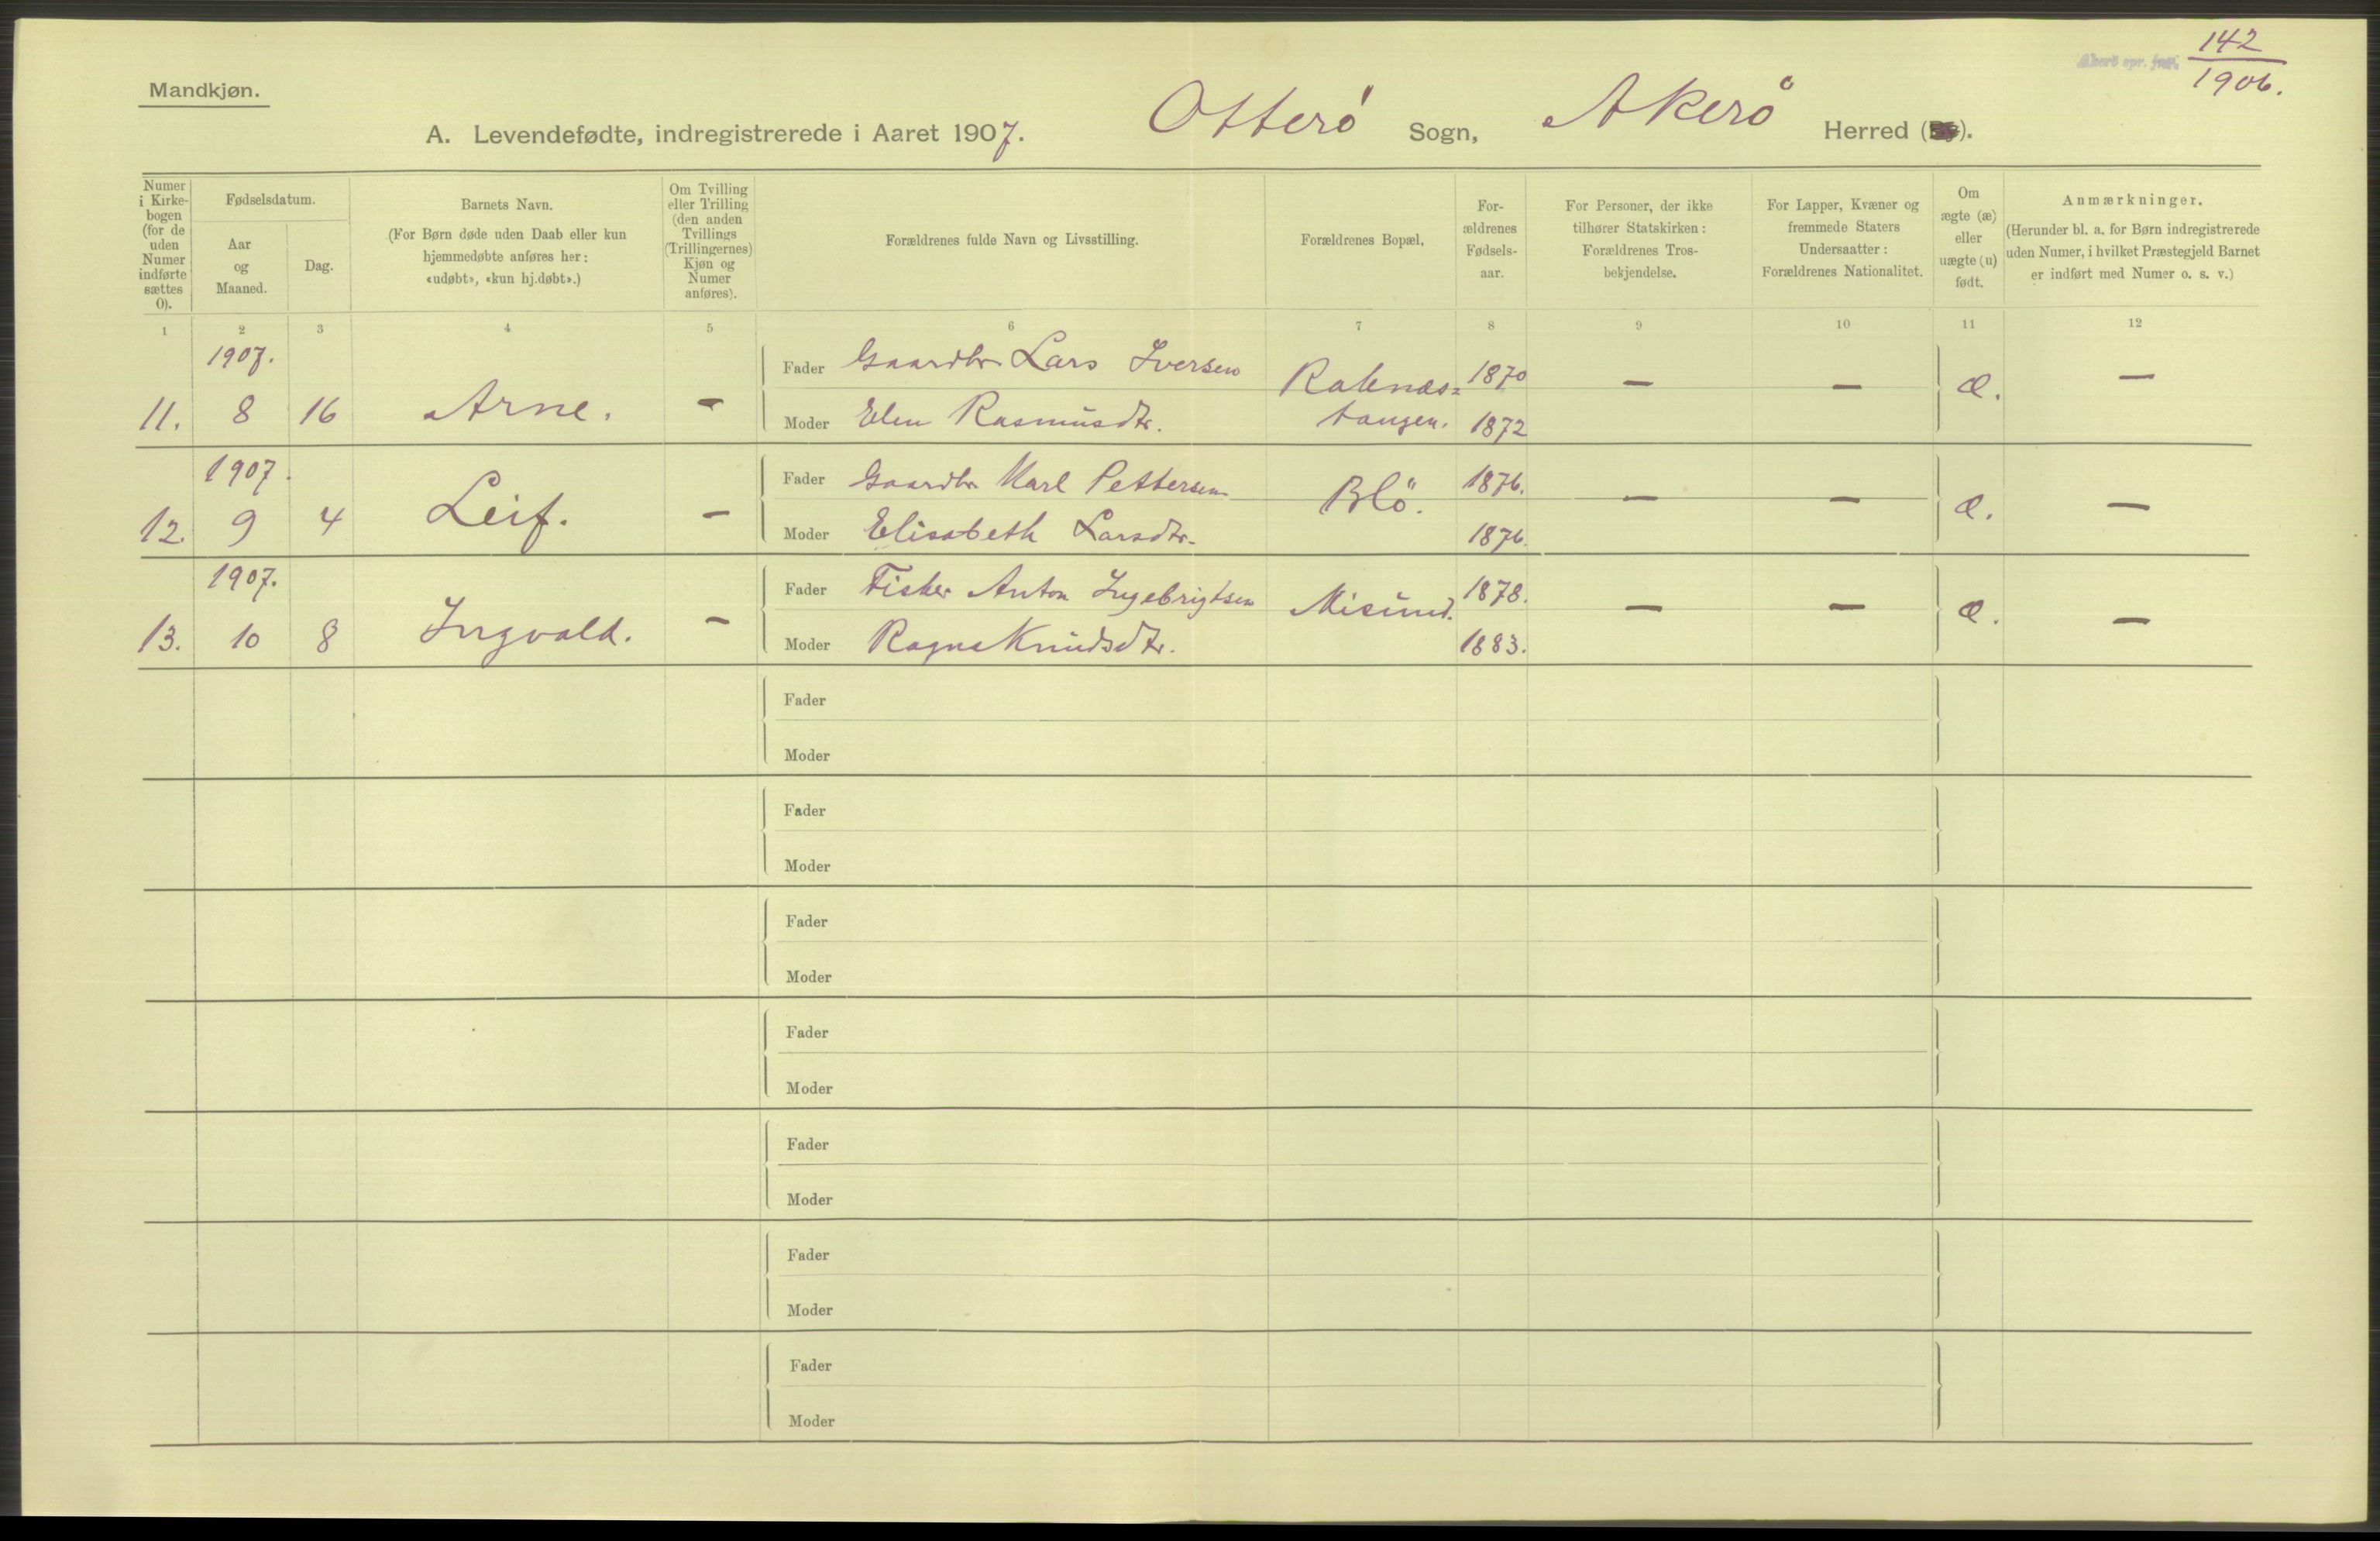 142
1906.
Mandkjøn.
A. Levendefødte, indregistrerede i Aaret 1907. Otterö Sogn, Akerö Herred ( ).
Numer i Kirke-bogen (for de uden Numer indførte sættes 0).
Fødselsdatum.
Aar og Maaned.
Dag.
Barnets Navn.
(For Børn døde uden Daab eller kun
hjemmedøbte anføres her:
«udøbt», «kun hj.døbt».)
Om Tvilling
eller Trilling
(den anden
Tvillings
(Trillingernes)
Kjøn og
Numer
anføres).
Forældrenes fulde Navn og Livsstilling.
Forældrenes Bopæl,
For-
ældrenes
Fødsels-
aar.
For Personer, der ikke
tilhører Statskirken:
Forældrenes Tros-
bekjendelse.
For Lapper, Kvæner og
fremmede Staters
Undersaatter:
Forældrenes Nationalitet.
Om
ægte (æ)
eller
uægte (u)
født.
Anmærkninger.
(Herunder bl. a. for Børn indregistrerede
uden Numer, i hvilket Præstegjeld Barnet
er indført med Numer o. s. v.)
1 2 3 4 5 6 7 8 9 10 11 12
1907.
Fader Gaardbr. Lars Iversen 1870
11. 8 16 Arne. - Raknæs= — — æ. —
Moder Elen Rasmusdtr. tangen. 1872
1907.
Fader Gaardbr. Karl Pettersen 1876.
12. 9 4 Leif. - Blö. — — æ. —
Moder Elisabeth Larsdtr. 1876.
1907.
Fader Fisker Anton Ingebrigtsen 1878.
13. 10 8 Ingvald. - Misund. — — æ. —
Moder Ragna Knudsdtr. 1883.
Fader
Moder
Fader
Moder
Fader
Moder
Fader
Moder
Fader
Moder
Fader
Moder
Fader
Moder